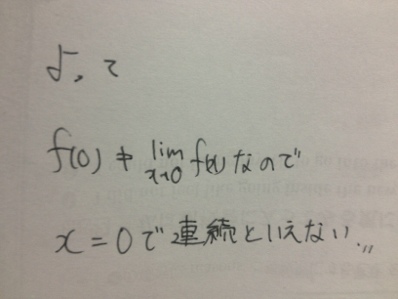 よって
f(0) ≠ lim x→0 f(x) なので
x = 0 で連続といえない.,,